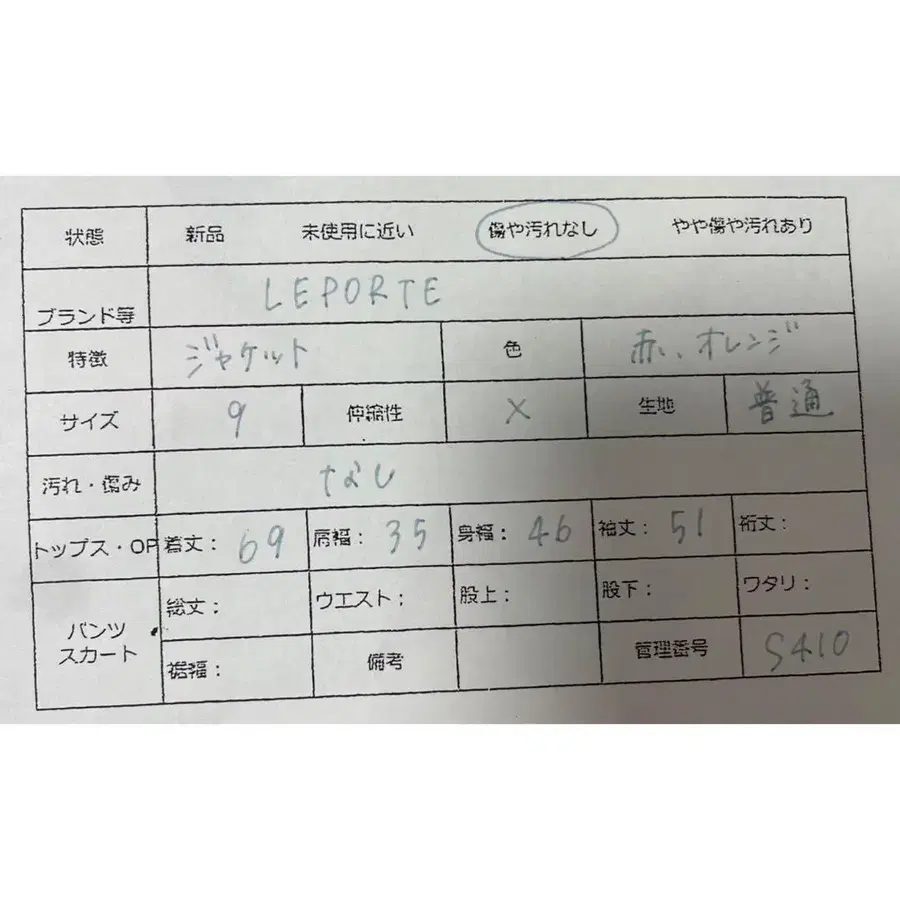 状態 新品 未使用に近い 傷や汚れなし やや傷や汚れあり
ブランド等 LEPORTE
特徴 ジャケット 色 赤い、オレンジ
サイズ 9 伸縮性 × 生地 普通
汚れ・傷み なし
トップス・OP 着丈: 69 肩幅: 35 身幅: 46 袖丈: 51 裄丈:
パンツ スカート 総丈: ウエスト: 股上: 股下: ワタリ:
裾幅: 備考 管理番号 S410